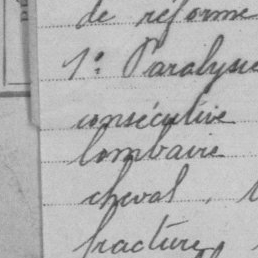 de réforme
1º Paralysie
consécutive
lombaire
cheval,
fracture